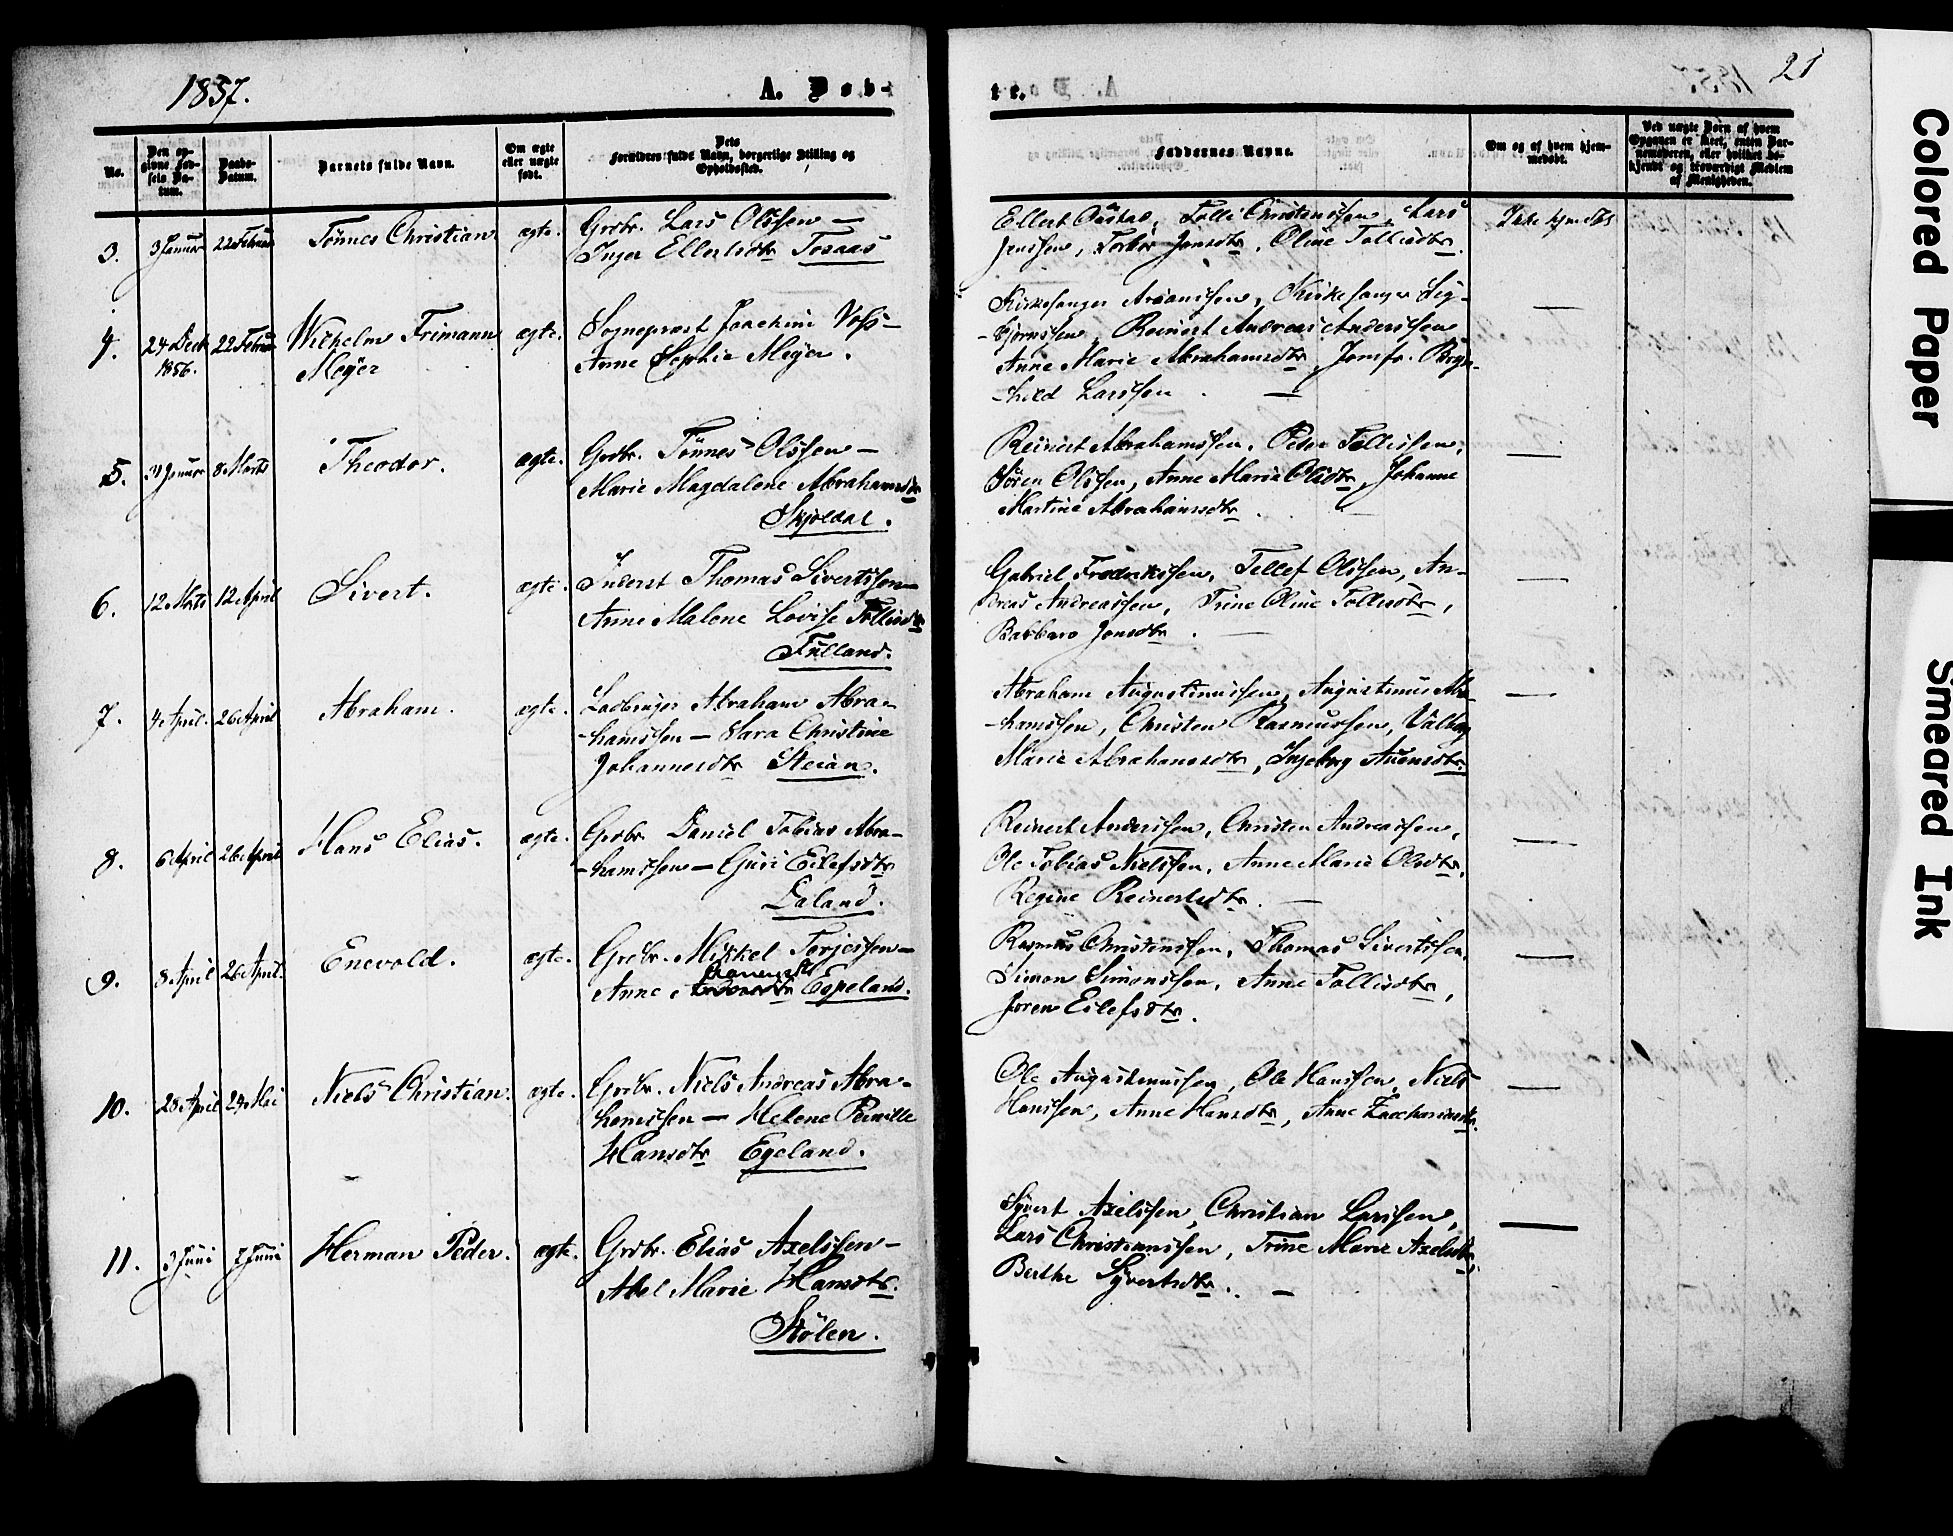 1857.
A. Døb-
No.
Den opgivne Fødsels Datum.
Daabs-Datum.
Barnets fulde Navn.
Om ægte eller uægte født.
Dets Forældres fulde Navn, borgerlige Stilling og Opholdssted.
3.
3 Januar
22 Februar
Tønnes Christian
ægte.
Grdbr. Lars Olssen —
Inger Ellertsdtr Tosaas
4.
24 Decb 1856.
22 Februar
Wilhelm Frimann
Meÿer
ægte.
Sognepræst Joachim Voss —
Anne Sophie Meÿer.
5.
8 Marts
Theodor.
ægte.
Grdbr. Tønnes Olssen —
Marie Magdalene Abrahamsdtr
Skjoldal.
6.
12 Marts
12 April
Sivert.
ægte.
Inderst Thomas Sivertssen —
Anne Malene Lovise Tollisdtr
Fulland.
7.
4 April.
26 April
Abraham.
ægte.
Abraham Abra-
hamssen — Sara Christine
Johannesdtr Steian.
8.
6 April
26 April
Hans Elias.
ægte.
Grdbr Daniel Tobias Abra-
hamssen — Guri Eilefsdtr
Ealand.
9.
8 April
26 April.
Enevold.
ægte.
Grdbr. Mikkel Terjessen —
Anne Espeland.
10.
28 April
24 Mai
Niels Christian.
ægte.
Grdbr. Niels Andreas Abra-
hamssen — Helene Pernille
Hansdtr Egeland.
11.
3 Juni
7 Juni
Herman Peder.
ægte.
Grdbr. Elias Axelssen —
Abel Marie Hansdtr.
Stølen.
te.
21
Faddernes Navne.
Om og af hvem hjemmedøbt.
Ved uægte Børn af hvem Opgaven er skeet, enten Barnemoderen, eller hvilket bekjendt og troværdigt Medlem af Menigheden.
Ellert Tolli Christenssen, Lars
Jenssen, Jonsdtr, Oline Tollisdtr.
Ikke hjemdøbt
Kirkesanger Kirkesanger Sig-
bjørnssen, Reinert Andreas Anderssen
Anne Marie Abrahamsdtr, Jomfr. Bryn-
hild Larssen. —
—
Reinert Abrahamssen, Peder Tollissen,
Søren Olssen, Anne Marie Olsdtr, Johanne
Martine Abrahamsdtr.
—
Gabriel Fredrikssen, Tellef Olssen, An-
dreas Andreassen, Trine Oline Tollisdtr,
Barbara Jonsdtr. —
—
Abraham Augustinussen, Augustinus Abra-
hamssen, Christen Rasmussen, Valborg
Marie Abrahamsdtr, Ingeborg
—
Reinert Anderssen, Christen Andreassen,
Ole Tobias Nielssen, Anne Marie Olsdtr,
Regine Reinertsdtr. —
—
Rasmus Christenssen, Thomas Sivertssen,
Simon Simonssen, Anne Tollisdtr,
Joren Eilefsdtr.
—
Ole Augustinussen, Ole Hanssen, Niels
Hanssen, Anne Hansdtr, Anne Zachariasdtr.
—
Syvert Axelssen, Christian Larssen,
Lars Christianssen, Trine Marie Axelsdtr,
Berthe Syvertsdtr. —
—
Colored Paper
Smeared Ink